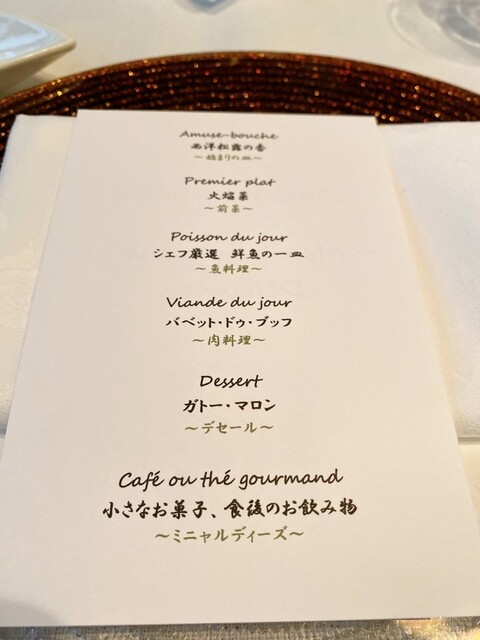 Amuse-bouche
西洋松露の香
～始まりの皿～
Premier plat
火焔菜
～前菜～
Poisson du jour
シェフ厳選 鮮魚の一皿
～魚料理～
Viande du jour
バベット・ドゥ・ブッフ
～肉料理～
Dessert
ガトー・マロン
～デセール～
Café ou thé gourmand
小さなお菓子、食後のお飲み物
～ミニャルディーズ～